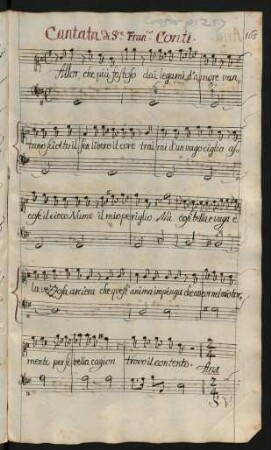 Cantata Di S.r Fran.co Conti.
Allor, che più festoso dai legami d'amore van,
tavo sciolto il libero il core trai rai d'un vago ciglio as,
cose il cieco Nume il mio periglio. Ma così bella e vaga è
la vezzosa arciera che quest'anima impiaga che ancor nel mio tor,
mento per sì bella cagion trovo il contento.
Aria